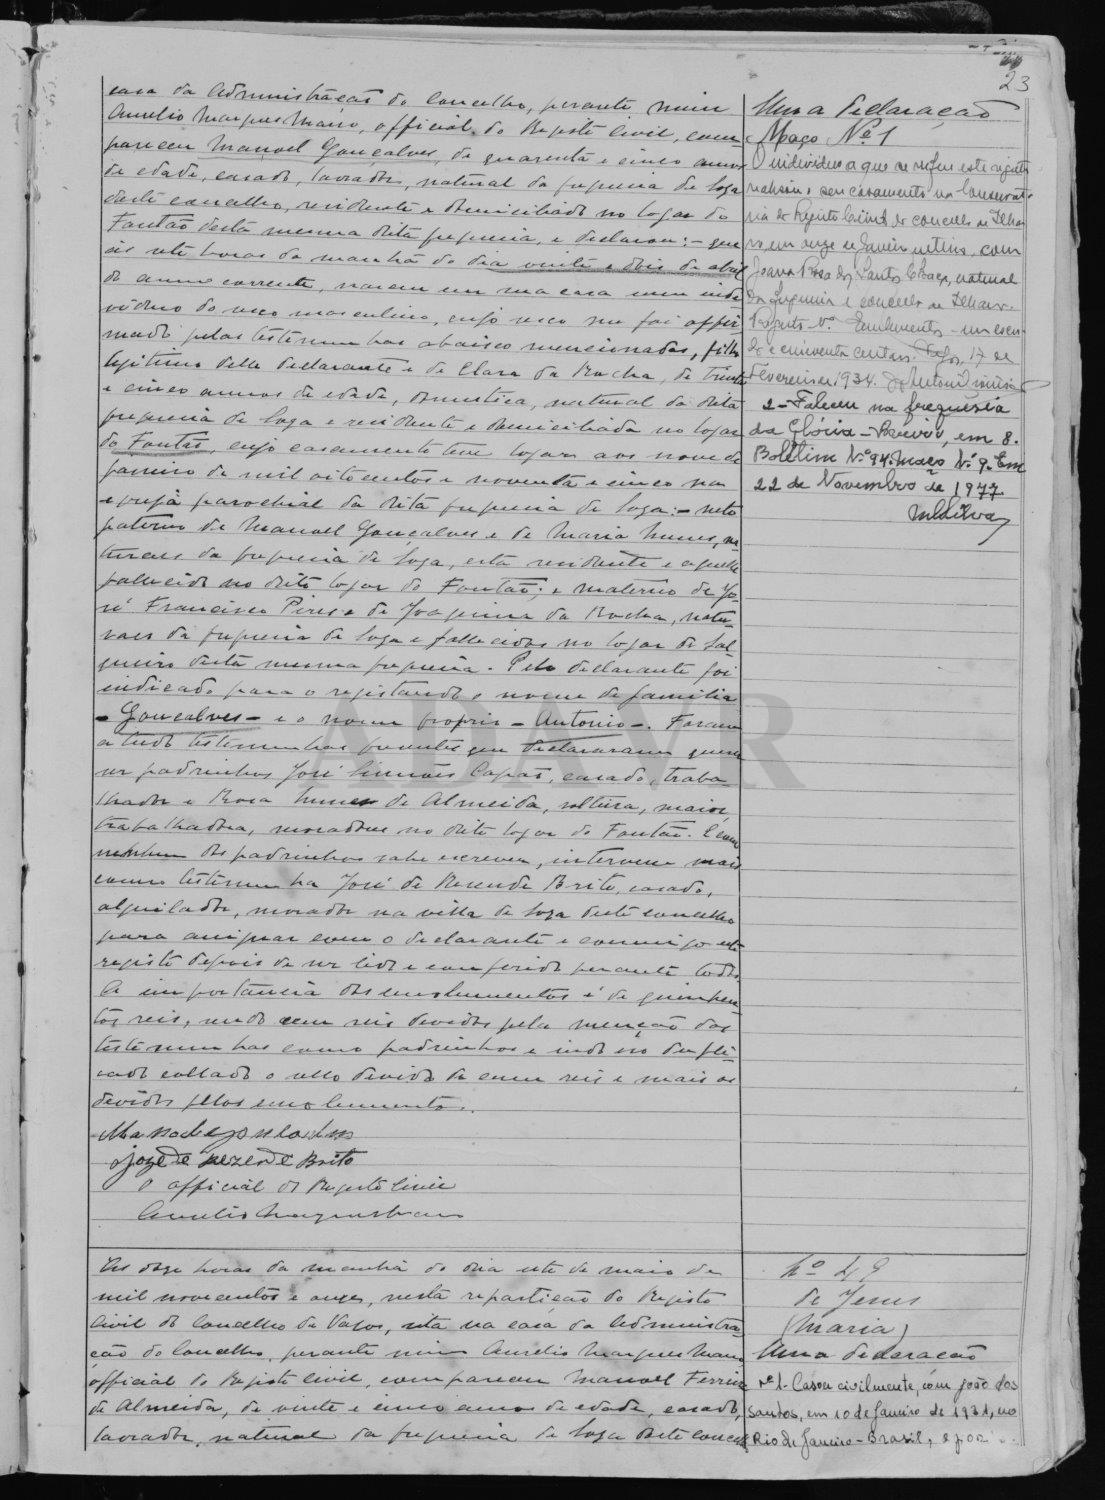 23
casa da Administração do Concelho, perante mim
Aurelio Marques Mano, official do Registo Civil, com
pareceu Manoel Gonçalves, de quarenta e cinco annos
de edade, casado, lavrador, natural da freguezia de Soza
deste concelho, residente e domiciliado no logar do
Fontão desta mesma dita freguezia, e declarou: - que
ás sete horas da manhã do dia vinte e dois de abril
do anno corrente, nasceu em sua casa um indi
viduo do sexo masculino, cujo sexo me foi affir
mado pelas testemunhas abaixo mencionadas, filho
legitimo delle declarante e de Clara da Rocha, de trinta
e cinco annos de edade, domestica, natural da dita
freguezia de Soza e residente e domiciliada no logar
do Fontão, cujo casamento teve logar aos nove de
janeiro de mil oitocentos e noventa e cinco na
egreja parochial da dita freguezia de Soza: - neto
paterno de Manoel Gonçalves e de Maria Nunes, na
turaes da freguezia de Soza, esta residente e aquelle
fallecido no dito logar do Fontão; e materno de Jo-
sé Francisco Pires e de Joaquina da Rocha, natu-
raes da freguezia de Soza e fallecidos no logar de Sal
gueiro desta mesma freguezia. Pelo declarante foi
indicado para o registando o nome de familia
- Gonçalves - e o nome proprio - Antonio -. Foram
a tudo testemunhas presentes que declararam querer
ser padrinhos José Simões Capão, casado, traba
lhador e Rosa Nunes de Almeida, solteira, maior,
trabalhadora, moradores no dito logar do Fontão. E como
nenhum dos padrinhos sabe escrever, interveio mais
como testemunha José de Resende Brito, casado,
alquilador, morador na villa de Soza deste concelho
para assignar com o declarante e commigo este
registo depois de ser lido e conferido perante todos.
A importancia dos emolumentos é de quinhen
tos reis, sendo cem reis devidos pela menção das
testemunhas como padrinhos e indo no dupli
cado collado o sello devido de cem reis e mais os
devidos pelos emolumentos.
Manoel Gonçalves
Joze de Rezende Brito
O official do Registo Civil
Aurelio Marques Mano
Uma declaração
Maço Nº 1
O individuo a que se refere este registo
realisou o seu casamento na Conservató-
ria do Registo Civil do concelho de Ilha-
vo, em onze de Janeiro ultimo, com
Joana Rosa dos Santos Chaça, natural
da freguezia e concelho de Ilhavo.
Registo nº Emolumentos - um escu-
do e cincoenta centavos. Vagos, 17 de
Fevereiro de 1934.
2 - Faleceu na freguesia
da Glória - Aveiro, em 8.
Boletim Nº 94. Maço Nº 9. Em
22 de Novembro de 1977.
MSilva
As onze horas da manhã do dia sete de maio de
mil novecentos e onze, nesta repartição do Registo
Civil do Concelho de Vagos, sita na casa da Administra-
ção do Concelho, perante mim Aurelio Marques Mano
official do Registo Civil, compareceu Manoel Ferreira
de Almeida, de vinte e cinco annos de edade, casado,
lavrador, natural da freguezia de Soza deste concelho
Nº 49
de Jesus
(Maria)
Uma declaração
Nº 1. Casou civilmente, com João dos
Santos, em 10 de Janeiro de 1931, no
Rio de Janeiro - Brasil, e por
ADAVR